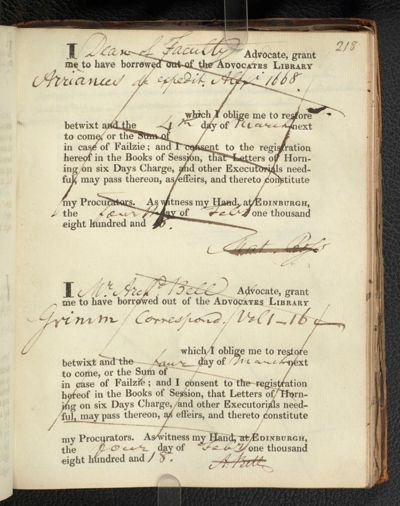 218
I Dean of Faculty Advocate, grant
me to have borrowed out of the ADVOCATES LIBRARY
Arrianus de expedit. Alexri 1668.
which I oblige me to restore
betwixt and the 4th day of March next
to come, or the Sum of
in case of Failzie; and I consent to the registration
hereof in the Books of Session, that Letters of Horn-
ing on six Days Charge, and other Executorials need-
ful may pass thereon, as effeirs, and thereto constitute
my Procurators. As witness my Hand, at EDINBURGH,
the fourth day of Feby one thousand
eight hundred and 18.
I Mr. Archd Bell Advocate, grant
me to have borrowed out of the ADVOCATES LIBRARY
Grimm Correspond. Vol 1-16
which I oblige me to restore
betwixt and the four day of March next
to come, or the Sum of
in case of Failzie; and I consent to the registration
hereof in the Books of Session, that Letters of Horn-
ing on six Days Charge, and other Executorials need-
ful, may pass thereon, as effeirs, and thereto constitute
my Procurators. As witness my Hand, at EDINBURGH,
the four day of Feby one thousand
eight hundred and 18.
A. Bell